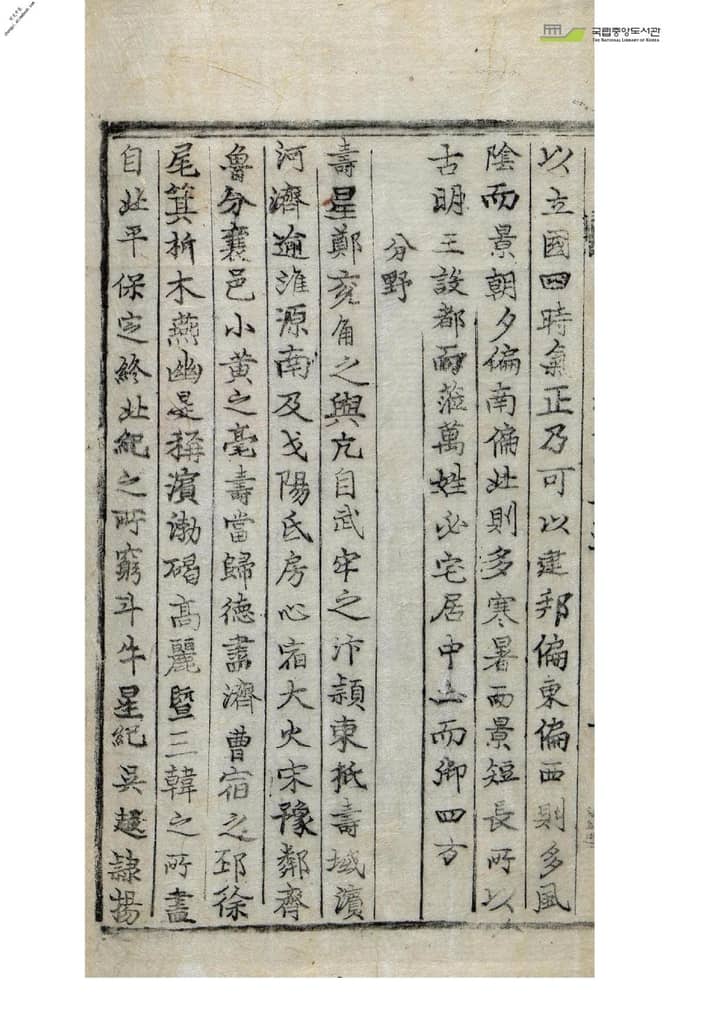 국립중앙도서관
THE NATIONAL LIBRARY OF KOREA
以立國四時氣正乃可以建邦偏東偏西則多風
陰而景朝夕偏南偏北則多寒暑而景短長所以
古明王設都而蒞萬姓必宅居中土而御四方
分野
壽星鄭兗角之與亢自武牢之汴潁東抵壽域濱
河濟逾淮源南及弋陽氐房心宿大火宋豫鄰齊
魯分襄邑小黃之亳壽當歸德盡濟曹宿之邳徐
尾箕析木燕幽是稱濱渤碣高麗曁三韓之所盡
自北平保定終北紀之所窮斗牛星紀吳越隷揚